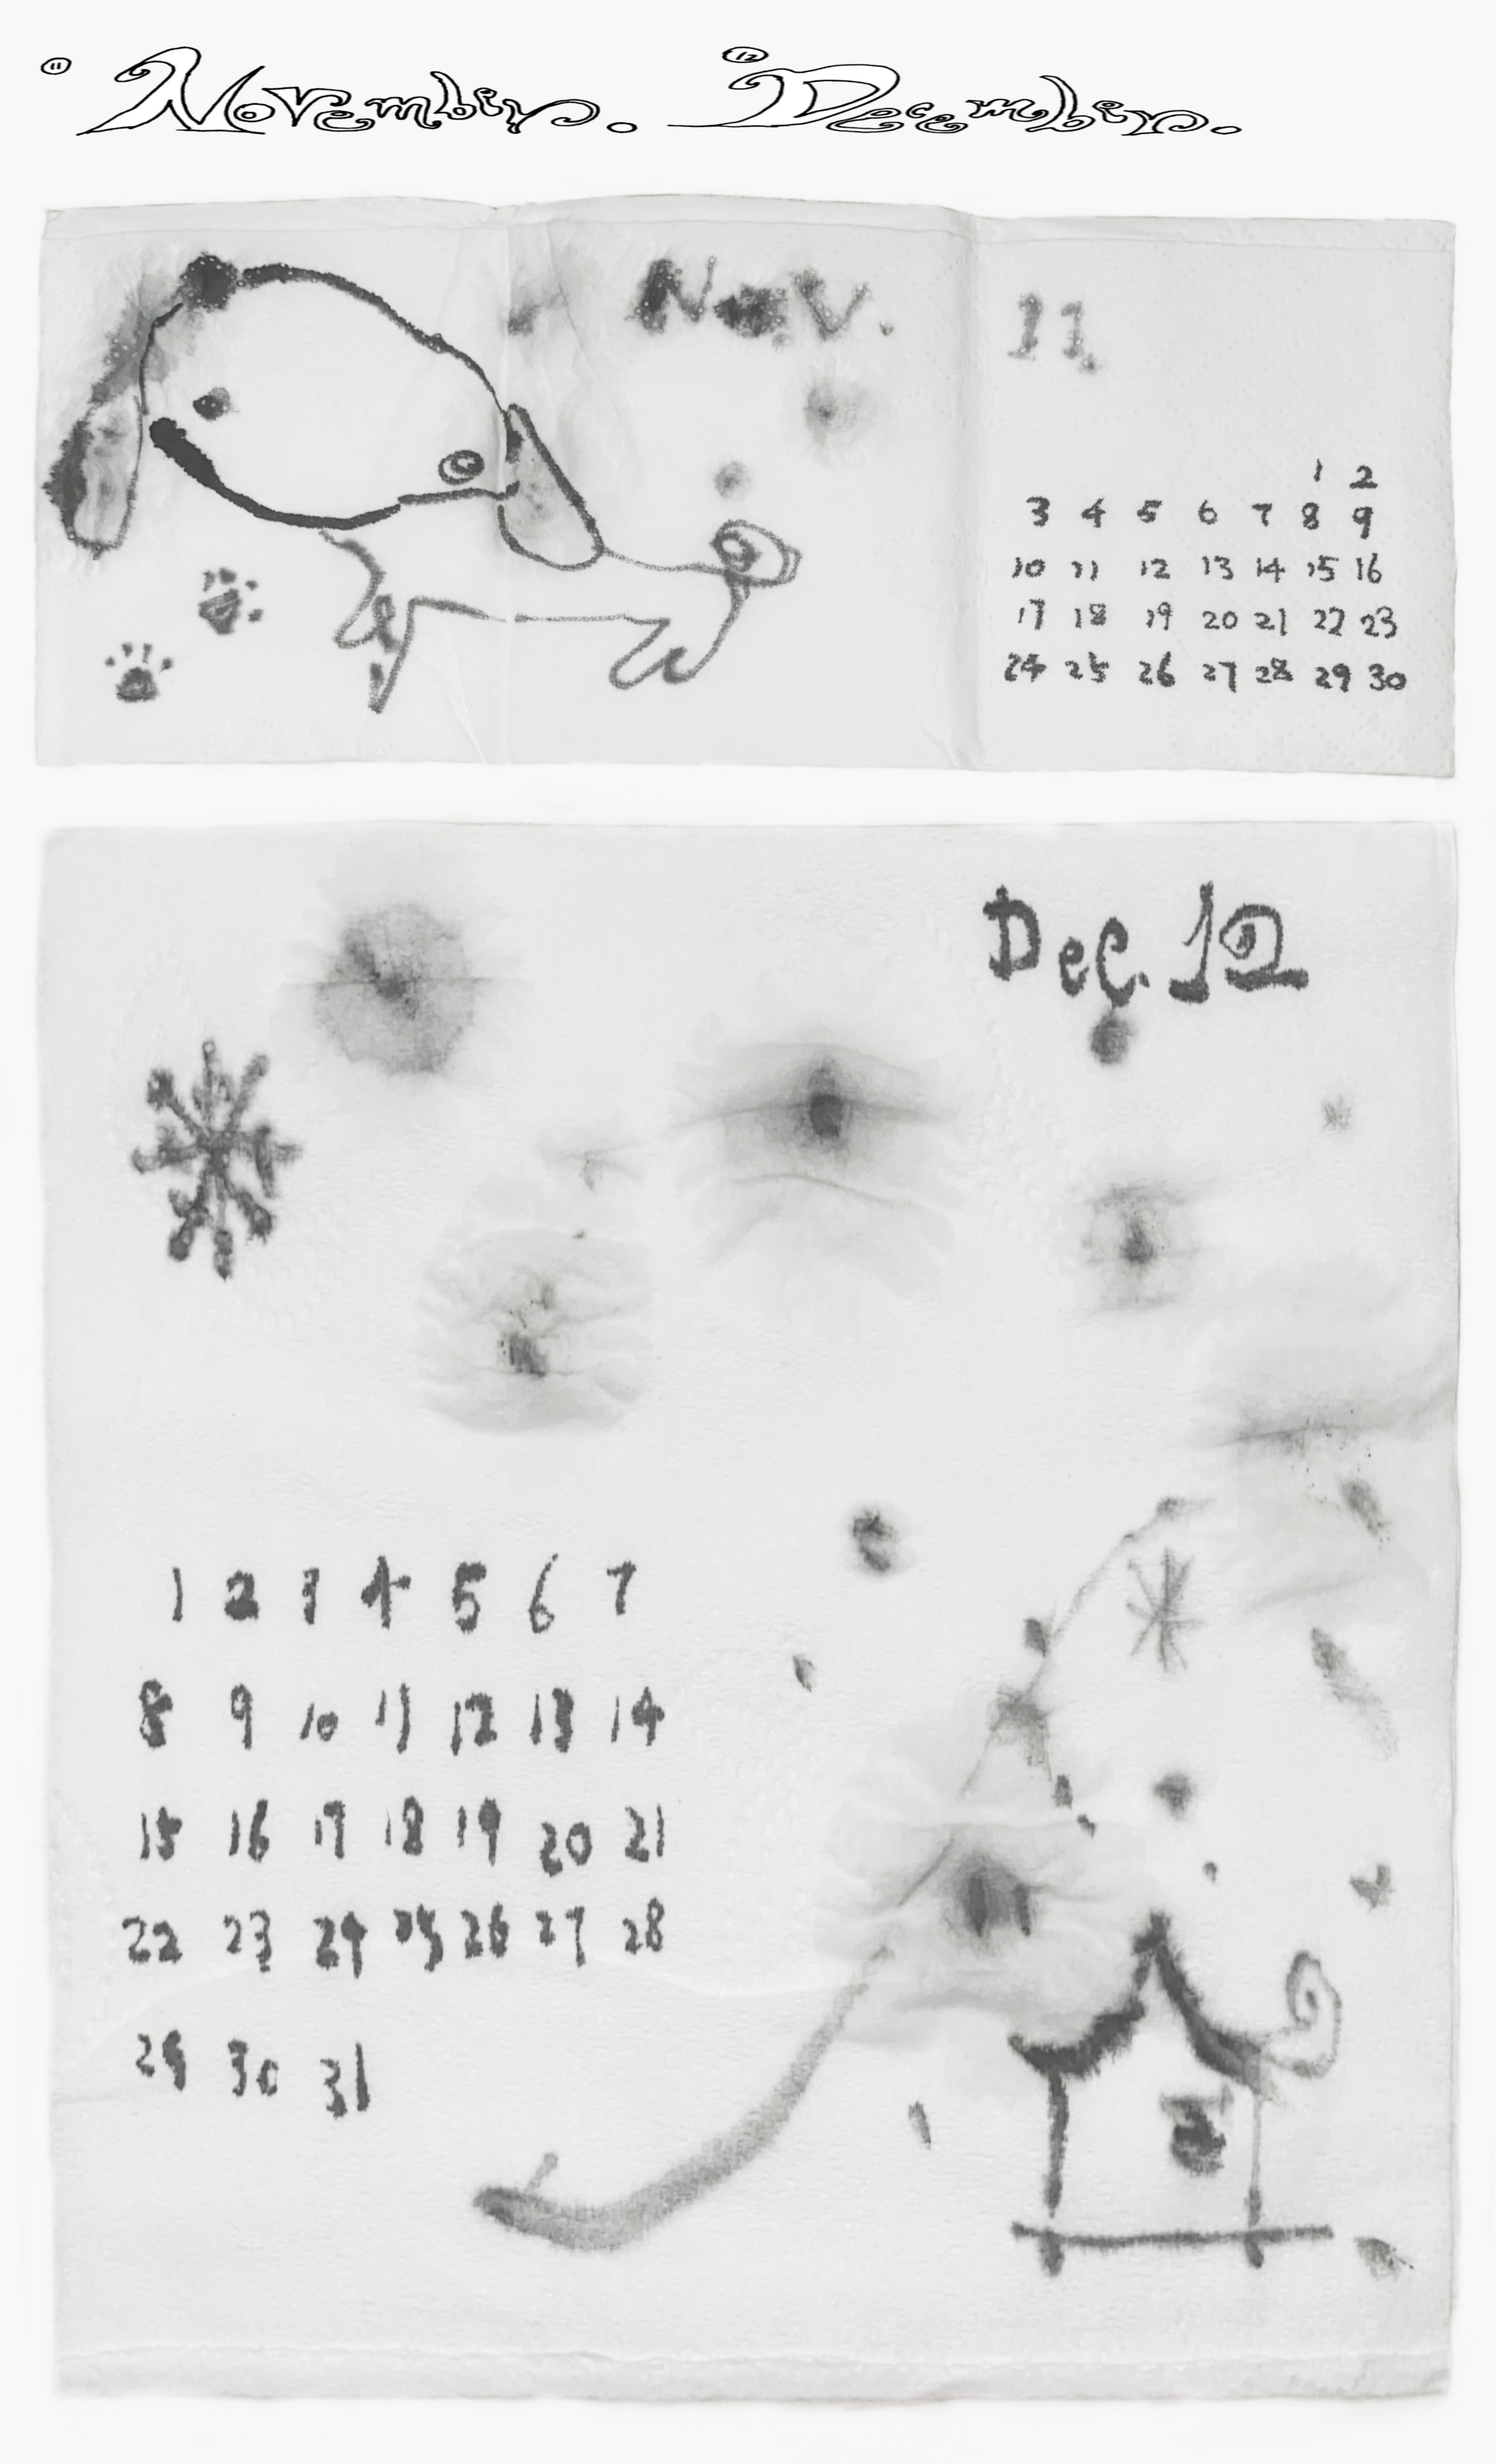 11 November. 12 December.
Nov. 11.
1 2
3 4 5 6 7 8 9
10 11 12 13 14 15 16
17 18 19 20 21 22 23
24 25 26 27 28 29 30
Dec. 12
1 2 3 4 5 6 7
8 9 10 11 12 13 14
15 16 17 18 19 20 21
22 23 24 25 26 27 28
29 30 31